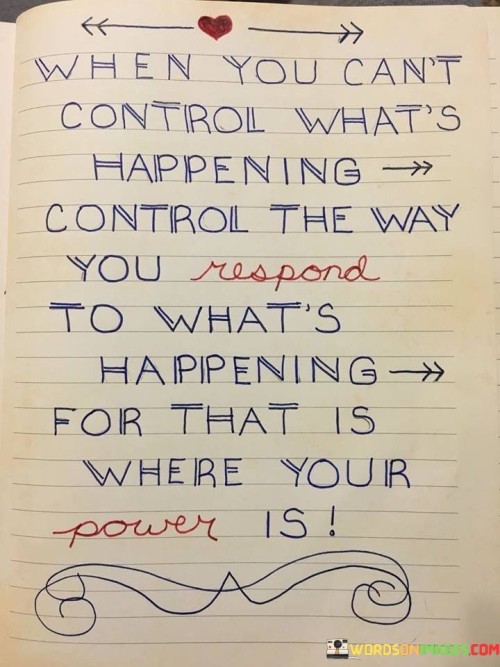 WHEN YOU CAN'T
CONTROL WHAT'S
HAPPENING
CONTROL THE WAY
YOU respond
TO WHAT'S
HAPPENING
FOR THAT IS
WHERE YOUR
power IS!
WORDSONIMAGES.COM